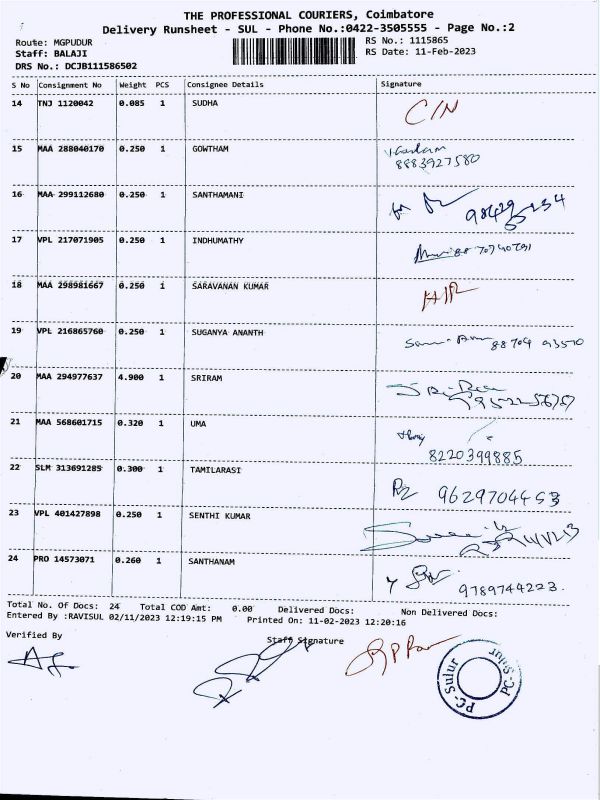 THE PROFESSIONAL COURIERS, Coimbatore
Delivery Runsheet - SUL - Phone No.:0422-3505555 - Page No.:2
Route: MGPUDUR RS No.: 1115865
Staff: BALAJI RS Date: 11-Feb-2023
DRS No.: DCJB111586502
S No Consignment No Weight PCS Consignee Details Signature
14 TNJ 1120042 0.085 1 SUDHA C/N
15 MAA 288040170 0.250 1 GOWTHAM
8883927580
16 MAA 299112680 0.250 1 SANTHAMANI
17 VPL 217071905 0.250 1 INDHUMATHY
18 MAA 298981667 0.250 1 SARAVANAN KUMAR
19 VPL 216865760 0.250 1 SUGANYA ANANTH 88704 93570
20 MAA 294977637 4.900 1 SRIRAM
21 MAA 568601715 0.320 1 UMA
8220399885
22 SLM 313691285 0.300 1 TAMILARASI 9629704453
23 VPL 401427898 0.250 1 SENTHI KUMAR
24 PRO 14573071 0.260 1 SANTHANAM 9789744223
Total No. Of Docs: 24 Total COD Amt: 0.00 Delivered Docs: Non Delivered Docs:
Entered By :RAVISUL 02/11/2023 12:19:15 PM Printed On: 11-02-2023 12:20:16
Verified By Staff Signature
PC-Sulur PC-Sulur